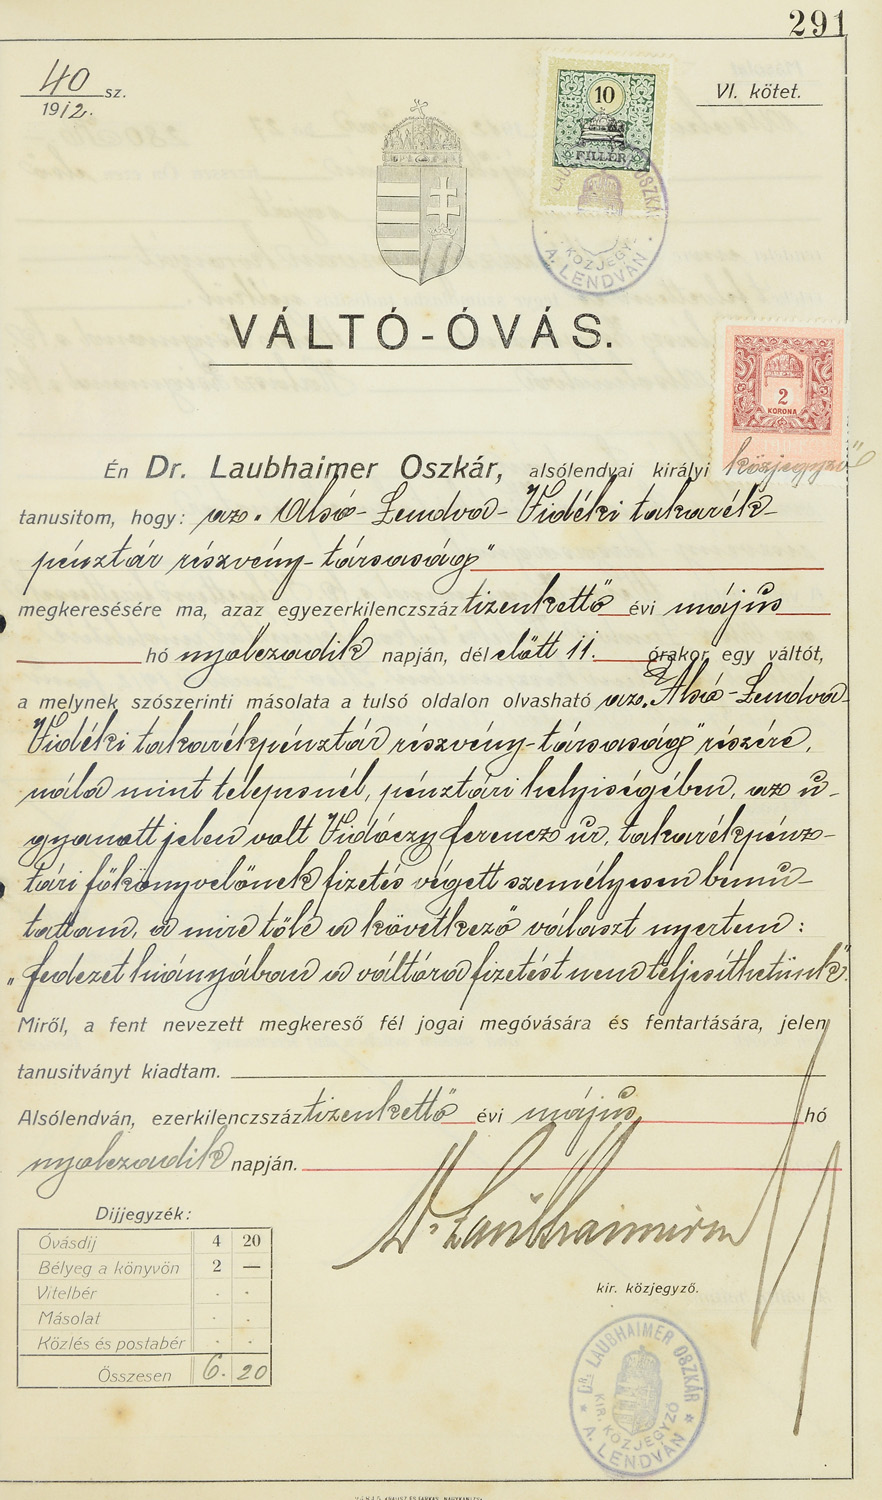 291
40 sz.
1912.
VI. kötet.
10
FILLÉR
OSZKÁR
KÖZJEGY
A. LENDVÁN
VÁLTÓ-ÓVÁS.
2
KORONA
Én Dr. Laubhaimer Oszkár, alsólendvai királyi közjegyző
tanusitom, hogy: az „Alsó-Lendva-Vidéki takarék-
pénztár részvény-társaság"
megkeresésére ma, azaz egyezerkilenczszáz tizenkettő évi május
hó nyolczadik napján, dél előtt 11. órakor egy váltót,
a melynek szószerinti másolata a tulsó oldalon olvasható az „Alsó-Lendva-
Vidéki takarékpénztár részvény-társaság" részére,
nála mint telepesnél, pénztári helyiségében, az u-
gyanott jelen volt Vidóczy Ferencz úr, takarékpénz-
tári főkönyvelőnek fizetés végett személyesen bemu-
tattam, a mire tőle a következő választ nyertem:
„fedezet hiányában a váltóra fizetést nem teljesíthetünk".
Miről, a fent nevezett megkereső fél jogai megóvására és fentartására, jelen
tanusitványt kiadtam.
Alsólendván, ezerkilenczszáz tizenkettő évi május hó
nyolczadik napján.
Dr. Laubhaimer
kir. közjegyző.
Dijjegyzék:
Óvásdij 4 20
Bélyeg a könyvön 2 —
Vitelbér . .
Másolat . .
Közlés és postabér . .
Összesen 6. 20
* DR. LAUBHAIMER OSZKÁR *
KIR. KÖZJEGYZŐ
A. LENDVÁN